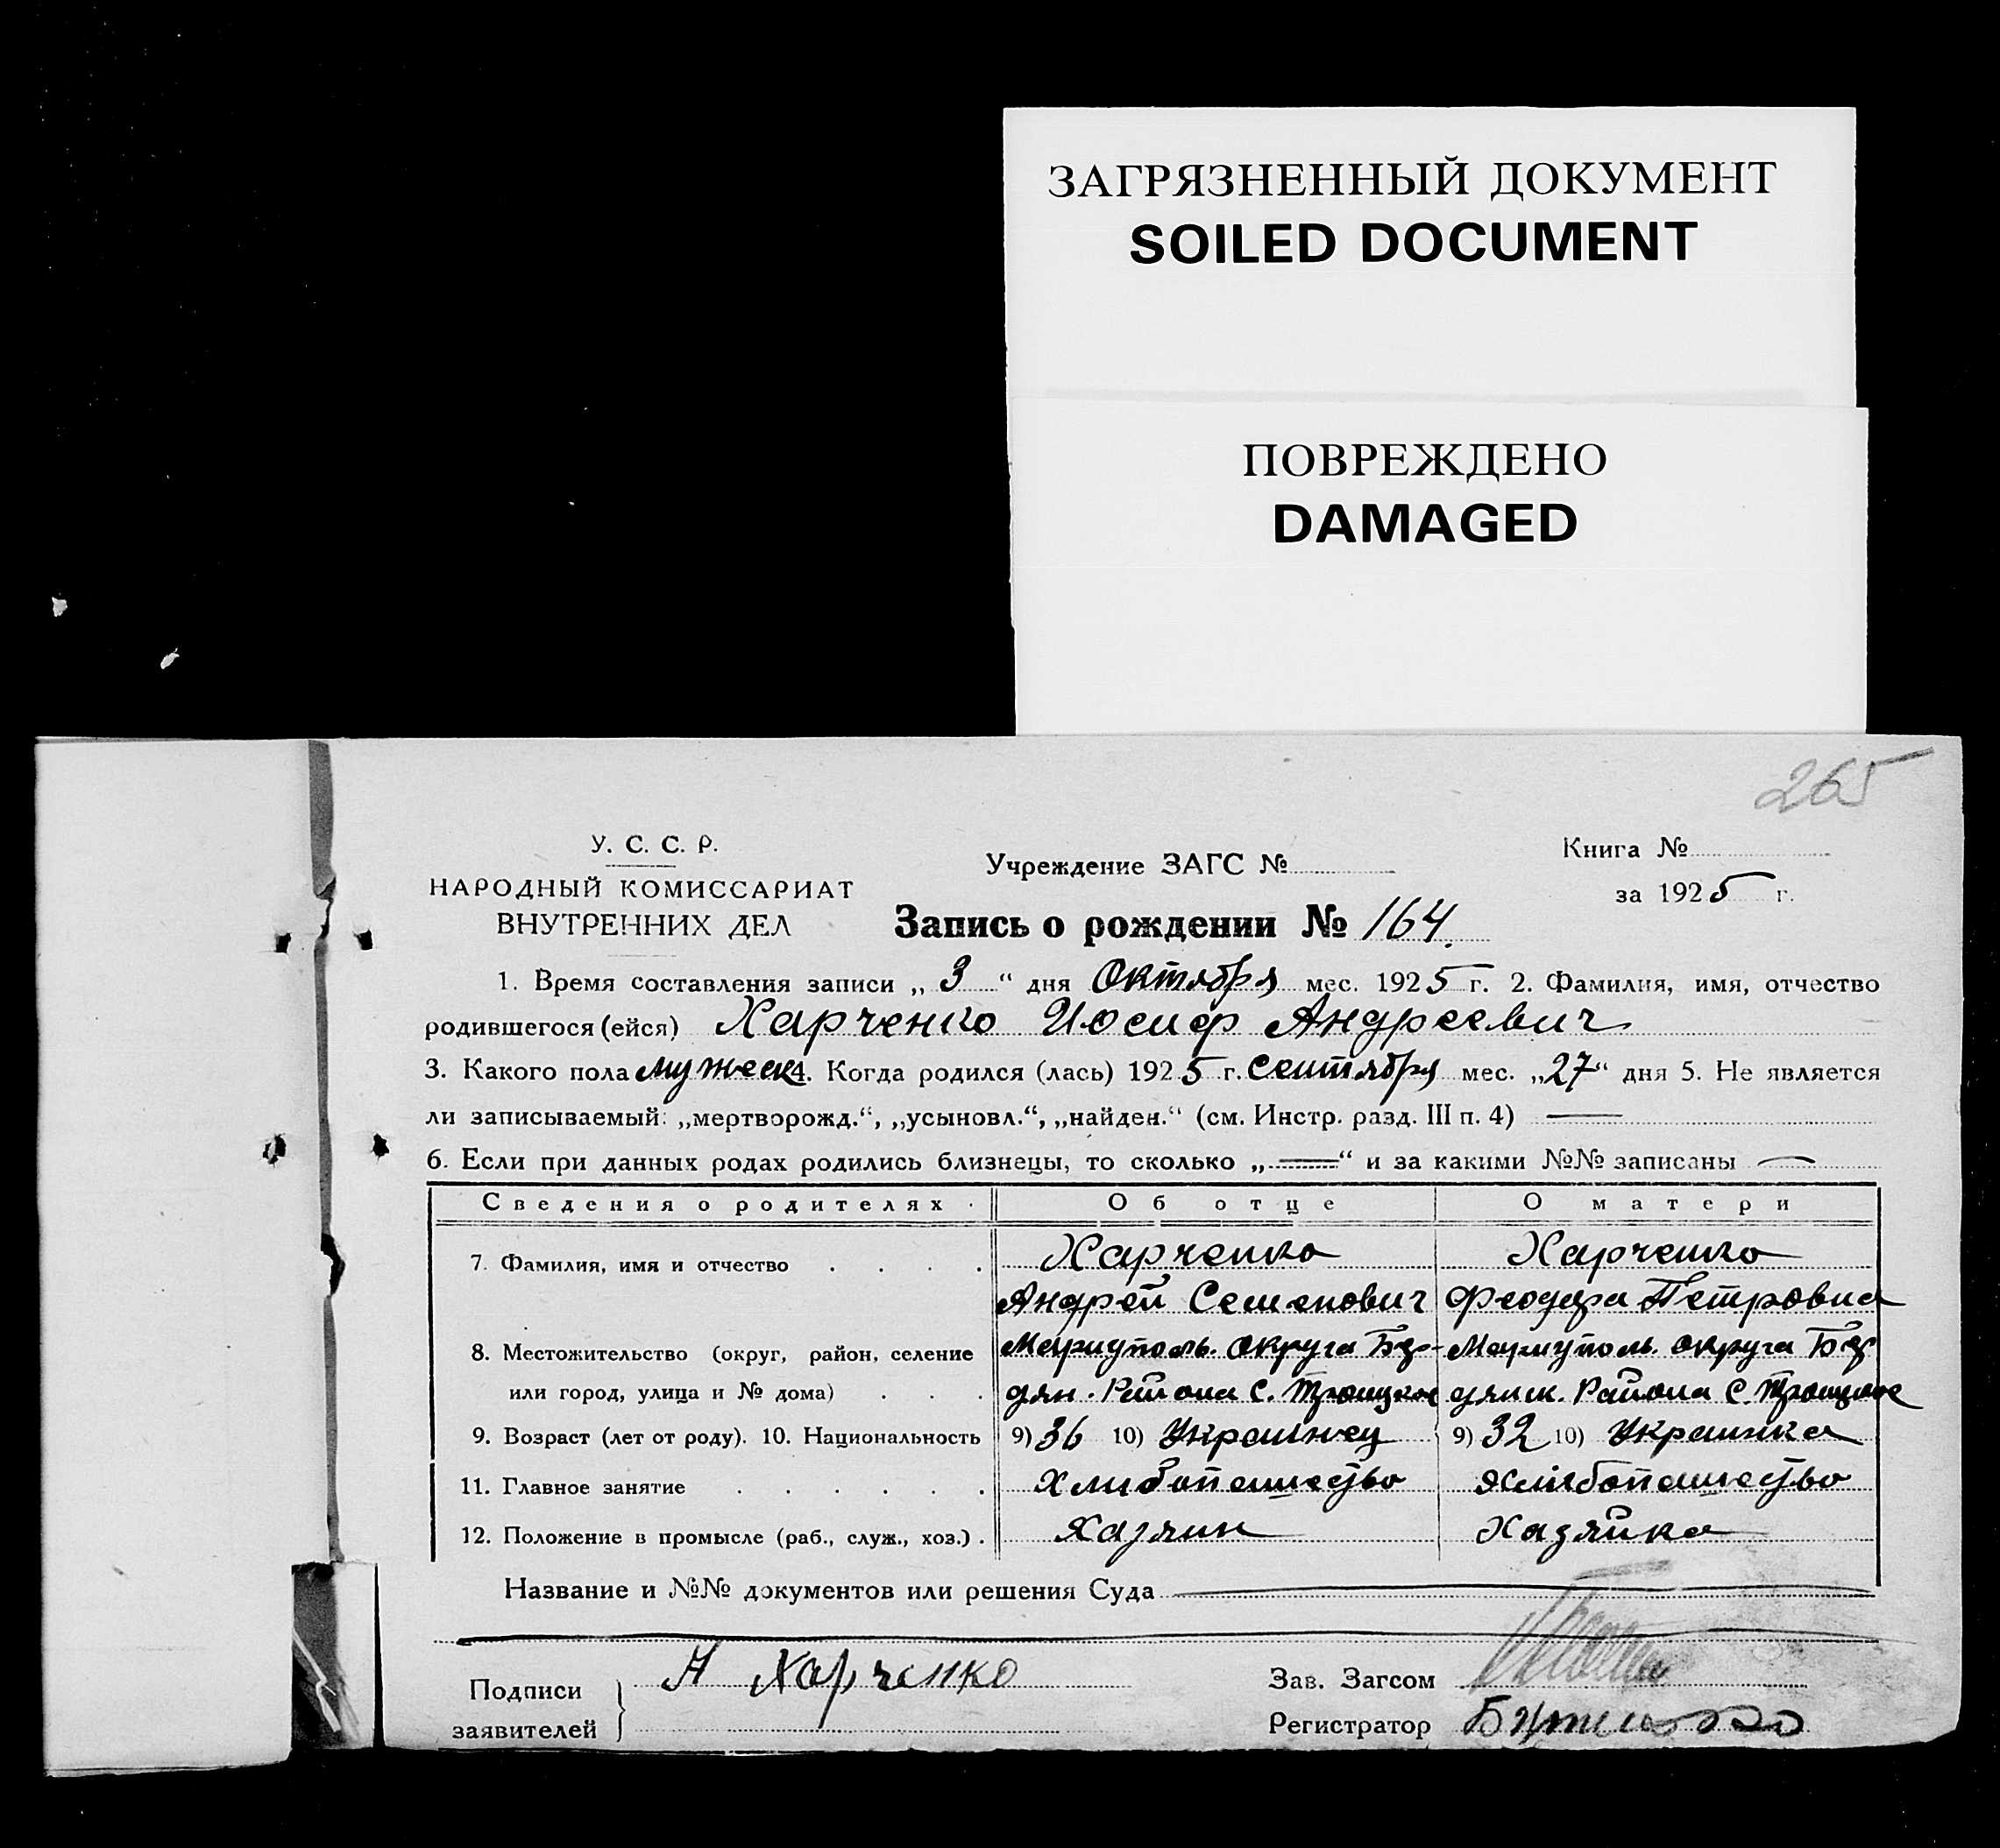 ЗАГРЯЗНЕННЫЙ ДОКУМЕНТ
SOILED DOCUMENT
ПОВРЕЖДЕНО
DAMAGED
265
У. С. С. Р.
НАРОДНЫЙ КОМИССАРИАТ
ВНУТРЕННИХ ДЕЛ
Учреждение ЗАГС №
Книга №
за 1925 г.
Запись о рождении № 164.
1. Время составления записи „ 3 “ дня Октября мес. 1925 г. 2. Фамилия, имя, отчество
родившегося (ейся) Харченко Иосиф Андреевич
3. Какого пола мужеск 4. Когда родился (лась) 1925 г. Сентября мес. „27“ дня 5. Не является
ли записываемый: „мертворожд.“, „усыновл.“, „найден.“ (см. Инстр. разд. III п. 4) —
6. Если при данных родах родились близнецы, то сколько „—“ и за какими №№ записаны —
Сведения о родителях Об отце О матери
7. Фамилия, имя и отчество . . . . Харченко Харченко
Андрей Семенович Феодора Петровна
8. Местожительство (округ, район, селение Мариуполь. округа Мариуполь. округа
или город, улица и № дома) . . . Района С. Троицкое Района С. Троицкое
9. Возраст (лет от роду). 10. Национальность 9) 36 10) Украинец 9) 32 10) Украинка
11. Главное занятие . . . . . . Хлибопашество Хлибопашество
12. Положение в промысле (раб., служ., хоз.) . Хазяин Хазяйка
Название и №№ документов или решения Суда
Подписи
заявителей
Н Харченко
Зав. Загсом
Регистратор